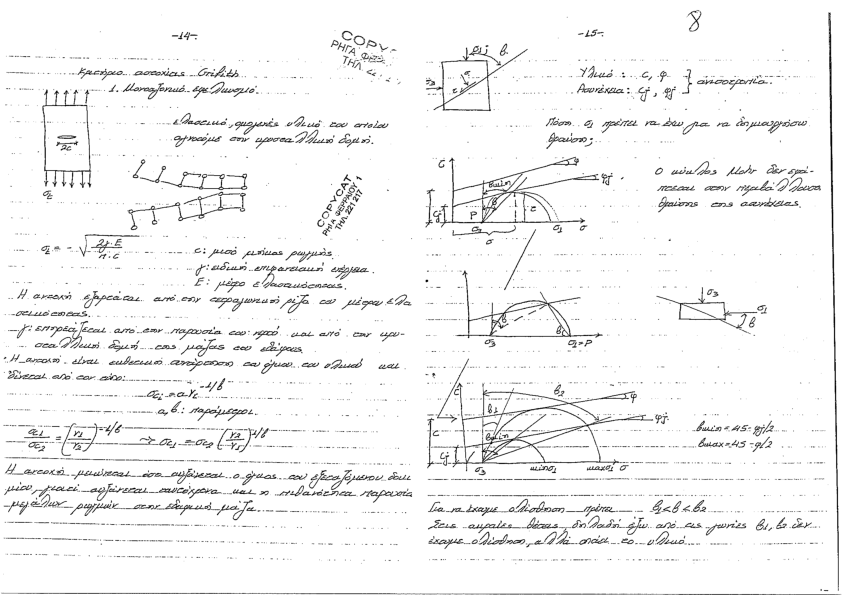 -14-
COPY
ΡΗΓΑ ΦΕΡ
ΤΗΛ
Κριτήριο αστοχίας Griffith
1. Μονοαξονικό εφελκυσμό.
2c
Ελαστικό, ομογενές υλικό του οποίου
αγνοούμε την κρυσταλλική δομή.
σt
COPYCAT
ΡΗΓΑ ΦΕΡΡΑΙΟΥ 1
ΤΗΛ. 221 217
σt = - √(2γ·E / π·c)
c: μισό μήκος ρωγμής.
γ: ειδική επιφανειακή ενέργεια.
E: μέτρο ελαστικότητας.
Η αντοχή εξαρτάται από την τετραγωνική ρίζα του μέτρου ελα-
στικότητας.
γ: επηρεάζεται από την παρουσία του νερού και από την κρυ-
σταλλική δομή της μάζας του εδάφους.
Η αντοχή είναι εκθετική συνάρτηση του όγκου του υλικού και
δίνεται από τον τύπο:
σci = a·Vi^-1/b
a, b: παράμετροι.
σc1/σc2 = (V1/V2)^-1/b → σc1 = σc2 (V2/V1)^1/b
Η αντοχή μειώνεται όσο αυξάνεται ο όγκος του εξεταζόμενου δοκι-
μίου, γιατί αυξάνεται ταυτόχρονα και η πιθανότητα παρουσία
μεγάλων ρωγμών στην εδαφική μάζα.
8
-15-
σ1 b
σ3 σ τ
Υλικό: c, φ
Ασυνέχεια: cj, φj } ανισοτροπία.
Πόση σ1 πρέπει να έχω για να δημιουργήσω
θραύση;
τ φ
bmin φj
c cj P b τ
σ3 σ1 σ
σ
Ο κύκλος Mohr δεν εφά-
πτεται στην περιβάλλουσα
θραύσης της ασυνέχειας.
b b
σ3 σ1=P
σ3
σ1
b
τ b2 φ
b1 φj
c bmin
cj
σ3 minσ1 maxσ1 σ
bmin=45-φj/2
bmax=45-φ/2
Για να έχουμε ολίσθηση πρέπει b1<b<b2
Στις ακραίες θέσεις δηλαδή έξω από τις γωνίες b1, b2 δεν
έχουμε ολίσθηση, αλλά σπάει το υλικό.